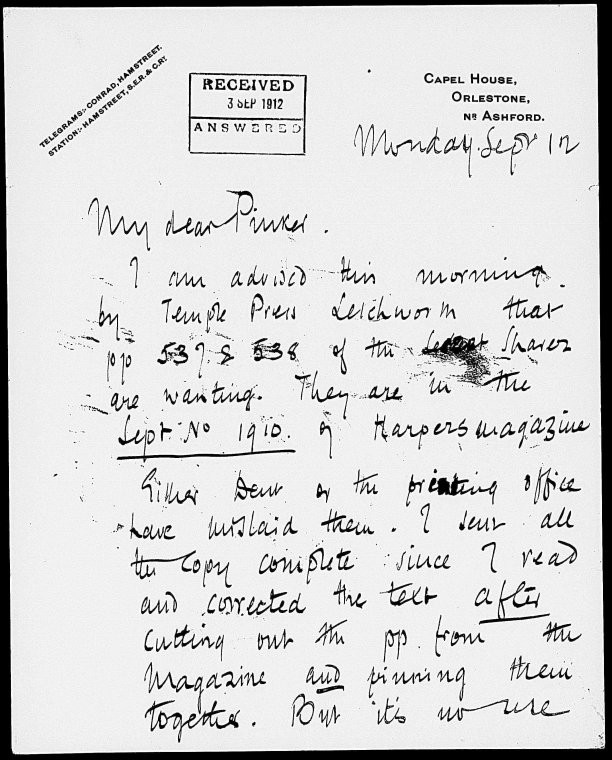 TELEGRAMS:- CONRAD, HAMSTREET.
STATION:- HAMSTREET, S.E.R. & C.RY.
RECEIVED
3 SEP 1912
ANSWERED
CAPEL HOUSE,
ORLESTONE,
NR ASHFORD.
Monday. Sept 12
My dear Pinker.
I am advised this morning
by Temple Press Letchworth that
pp 537 & 538 of the Secret Sharer
are wanting. They are in the
Sept No 1910. of Harpers magazine
Either Dent or the printing office
have mislaid them. I sent all
the copy complete since I read
and corrected the text after
cutting out the pp from the
Magazine and pinning them
together. But it's no use